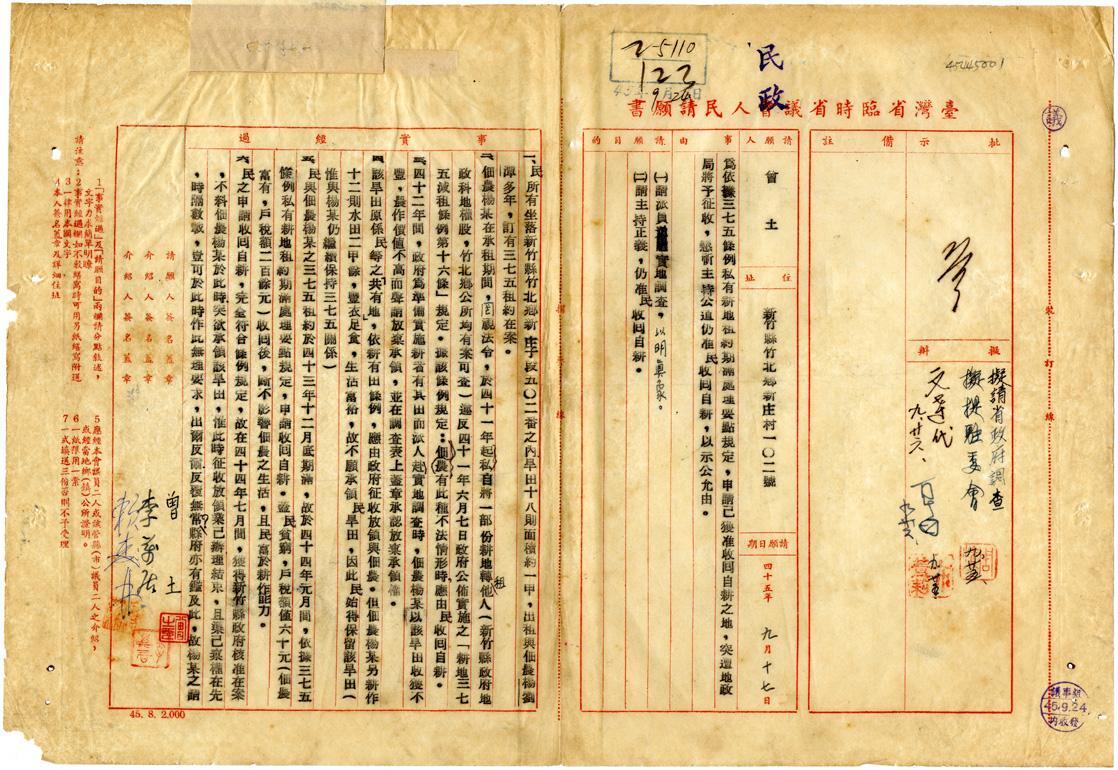 2-5110
122
45年9月24日
民政
45445001
臺灣省臨時省議會人民請願書
議
批示
備註
擬辦
擬請省政府調查
裝訂線
請願人
曾土
住址
新竹縣竹北鄉新庄村一〇二號
請願日期
四十五年九月十七日
事由
為依據三七五條例私有耕地租約期滿處理要點規定，申請已獲准收回自耕之地，突遭地政
局將予征收，懇祈主持公道仍准民收回自耕，以示公允由。
請願目的
㈠請派員實地調查，以明真象。
㈡請主持正義，仍准民收回自耕。
事實經過
一、民所有坐落新竹縣竹北鄉新庄子段五〇二番之內旱田十八則面積約一甲，出租與佃農楊劉
潭多年，訂有三七五租約在案。
二、佃農楊某在承租期間，罔視法令，於四十一年起私自將一部份耕地轉租他人（新竹縣政府地
政科地權股，竹北鄉公所均有案可查）違反四十一年六月七日政府公佈實施之「耕地三七
五減租條例第十六條」規定。據該條例規定：佃農有此種不法情形時應由民收回自耕。
三、四十二年間，政府為準備實施耕者有其田而派人赴實地調查時，佃農楊某以該旱田收獲不
豐，農作價值不高而聲請放棄承領，並在調查表上蓋章承認放棄承領權。
四、該旱田原係民等之「共有」地，依耕者有田條例，應由政府征收放領與佃農。但佃農楊某另耕作
十二則水田二甲餘，豐衣足食，生活富裕，故不願承領民旱田，因此民始得保留該旱田（
惟與楊某仍繼續保持三七五關係）
五、民與佃農楊某之三七五租約於四十三年十二月底期滿，故於四十四年元月間，依據三七五
條例私有耕地租約期滿處理要點規定，申請收回自耕。蓋民貧窮，戶稅額值六十元（佃農
富有，戶稅額二百餘元）收回後，斷不影響佃農之生活，且民富於耕作能力。
六、民之申請收回自耕，完全符合條例規定，故在四十四年七月間，獲得新竹縣政府核准在案
，不料佃農楊某於此時突欲承領該旱田，惟此時征收放領業已辦理結束，且業已棄權在先
，時隔數載，豈可於此時作此無理要求，出爾反爾反複無常，縣府亦有鑑及此，故楊某之請
請願人簽名蓋章
曾土
介紹人簽名蓋章
李萬居
介紹人簽名蓋章
請注意：
1「事實經過」及「請願目的」兩欄請分點敘述，
文字力求簡單明瞭
2事實經過欄如不敷繕寫時可用另紙繕寫附送
3一律用本國文字
4本人簽名蓋章及詳細住址
5應經本會議員二人或該管縣（市）議員二人之介紹，
或經當地鄉（鎮）公所證明。
6一紙限用一案
7一式填送三份否則不予受理
45. 8. 2,000
議事組
45.9.24
收發